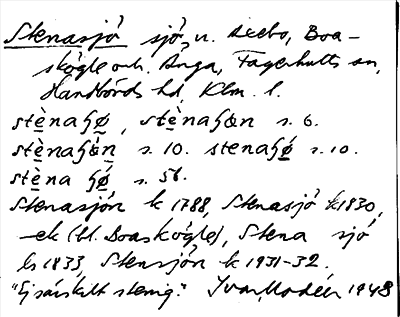 Stenasjö sjö, n. Aeebo, Boa-
skögle och Änga, Fagerhults sn,
Handbörds hd, Klm. l.
stènaʃø, stènaʃøn s. 6.
stènaʃøn s. 10. stenaʃø s. 10.
stèna ʃø s. 56.
Stenasjön k 1788, Stenasjö k 1830,
-ek (bl. Boaskögle), Stena sjö
ls 1833, Stensjön k 1931-32.
"Ej särskilt stenig." Ivar Modéer 1948